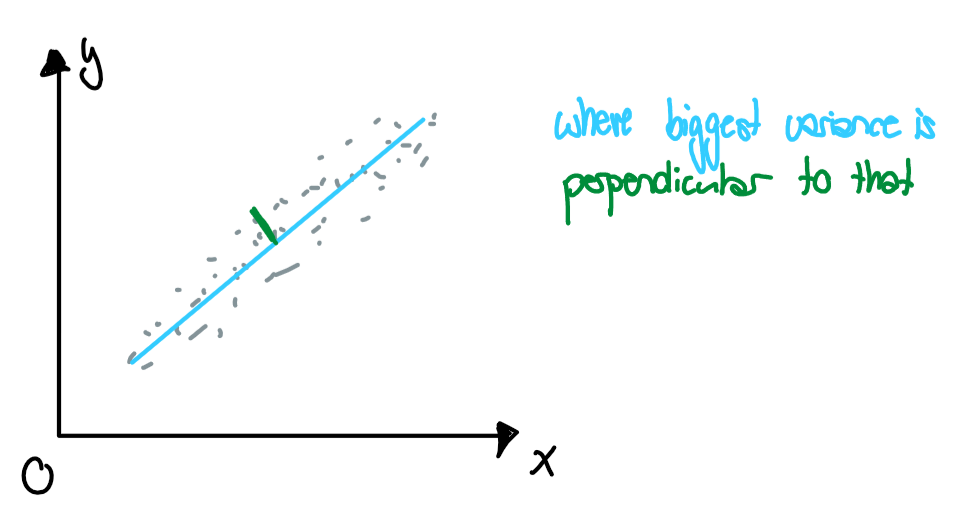 y
where biggest variance is
perpendicular to that
x
O